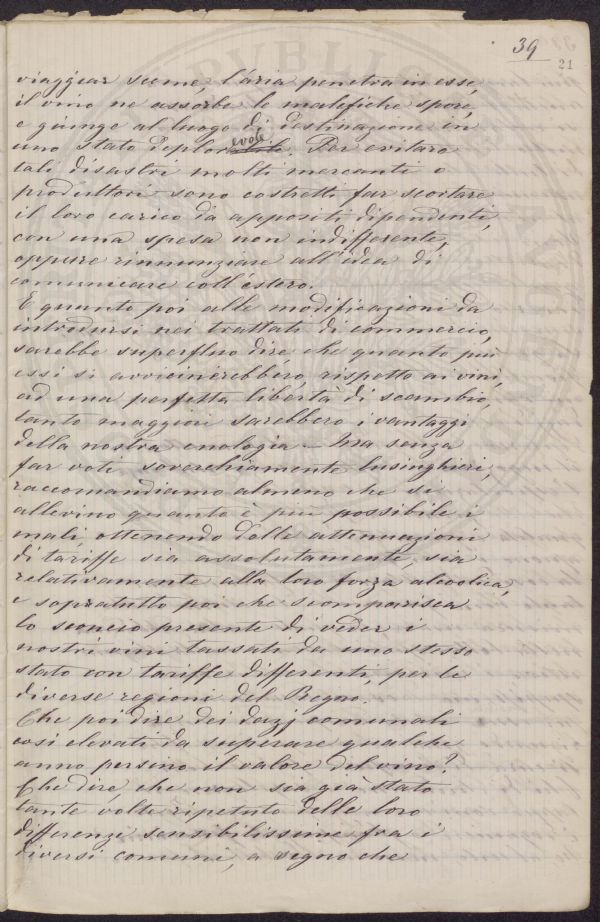 39
21
viaggiar sceme, l'aria penetra in esse,
il vino ne assorbe le malefiche spore,
e giunge al luogo di destinazione in
uno stato deplorevole. Per evitare
tali disastri molti mercanti e
produttori sono costretti far scortare
il loro carico da appositi dipendenti,
con una spesa non indifferente,
oppure rinunziare all'idea di
comunicare coll'estero.
E quanto poi alle modificazioni da
introdursi nei trattati di commercio,
sarebbe superfluo dire, che quanto più
essi si avvicinerebbero, rispetto ai vini,
ad una perfetta libertà di scambio,
tanto maggiori sarebbero i vantaggi
della nostra enologia – Ma senza
far voti soverchiamente lusinghieri,
raccomandiamo almeno che si
allevino quanto è più possibile i
mali, ottenendo delle attenuazioni
di tariffe sia assolutamente, sia
relativamente alla loro forza alcoolica,
e sopratutto poi che scomparisca
lo sconcio presente di veder i
nostri vini tassati da uno stesso
stato con tariffe differenti, per le
diverse regioni del Regno.
Che poi dire dei dazj comunali
così elevati da superare qualche
anno persino il valore del vino?
Che dire, che non sia già stato
tante volte ripetuto delle loro
differenze sensibilissime fra i
diversi comuni, a segno che